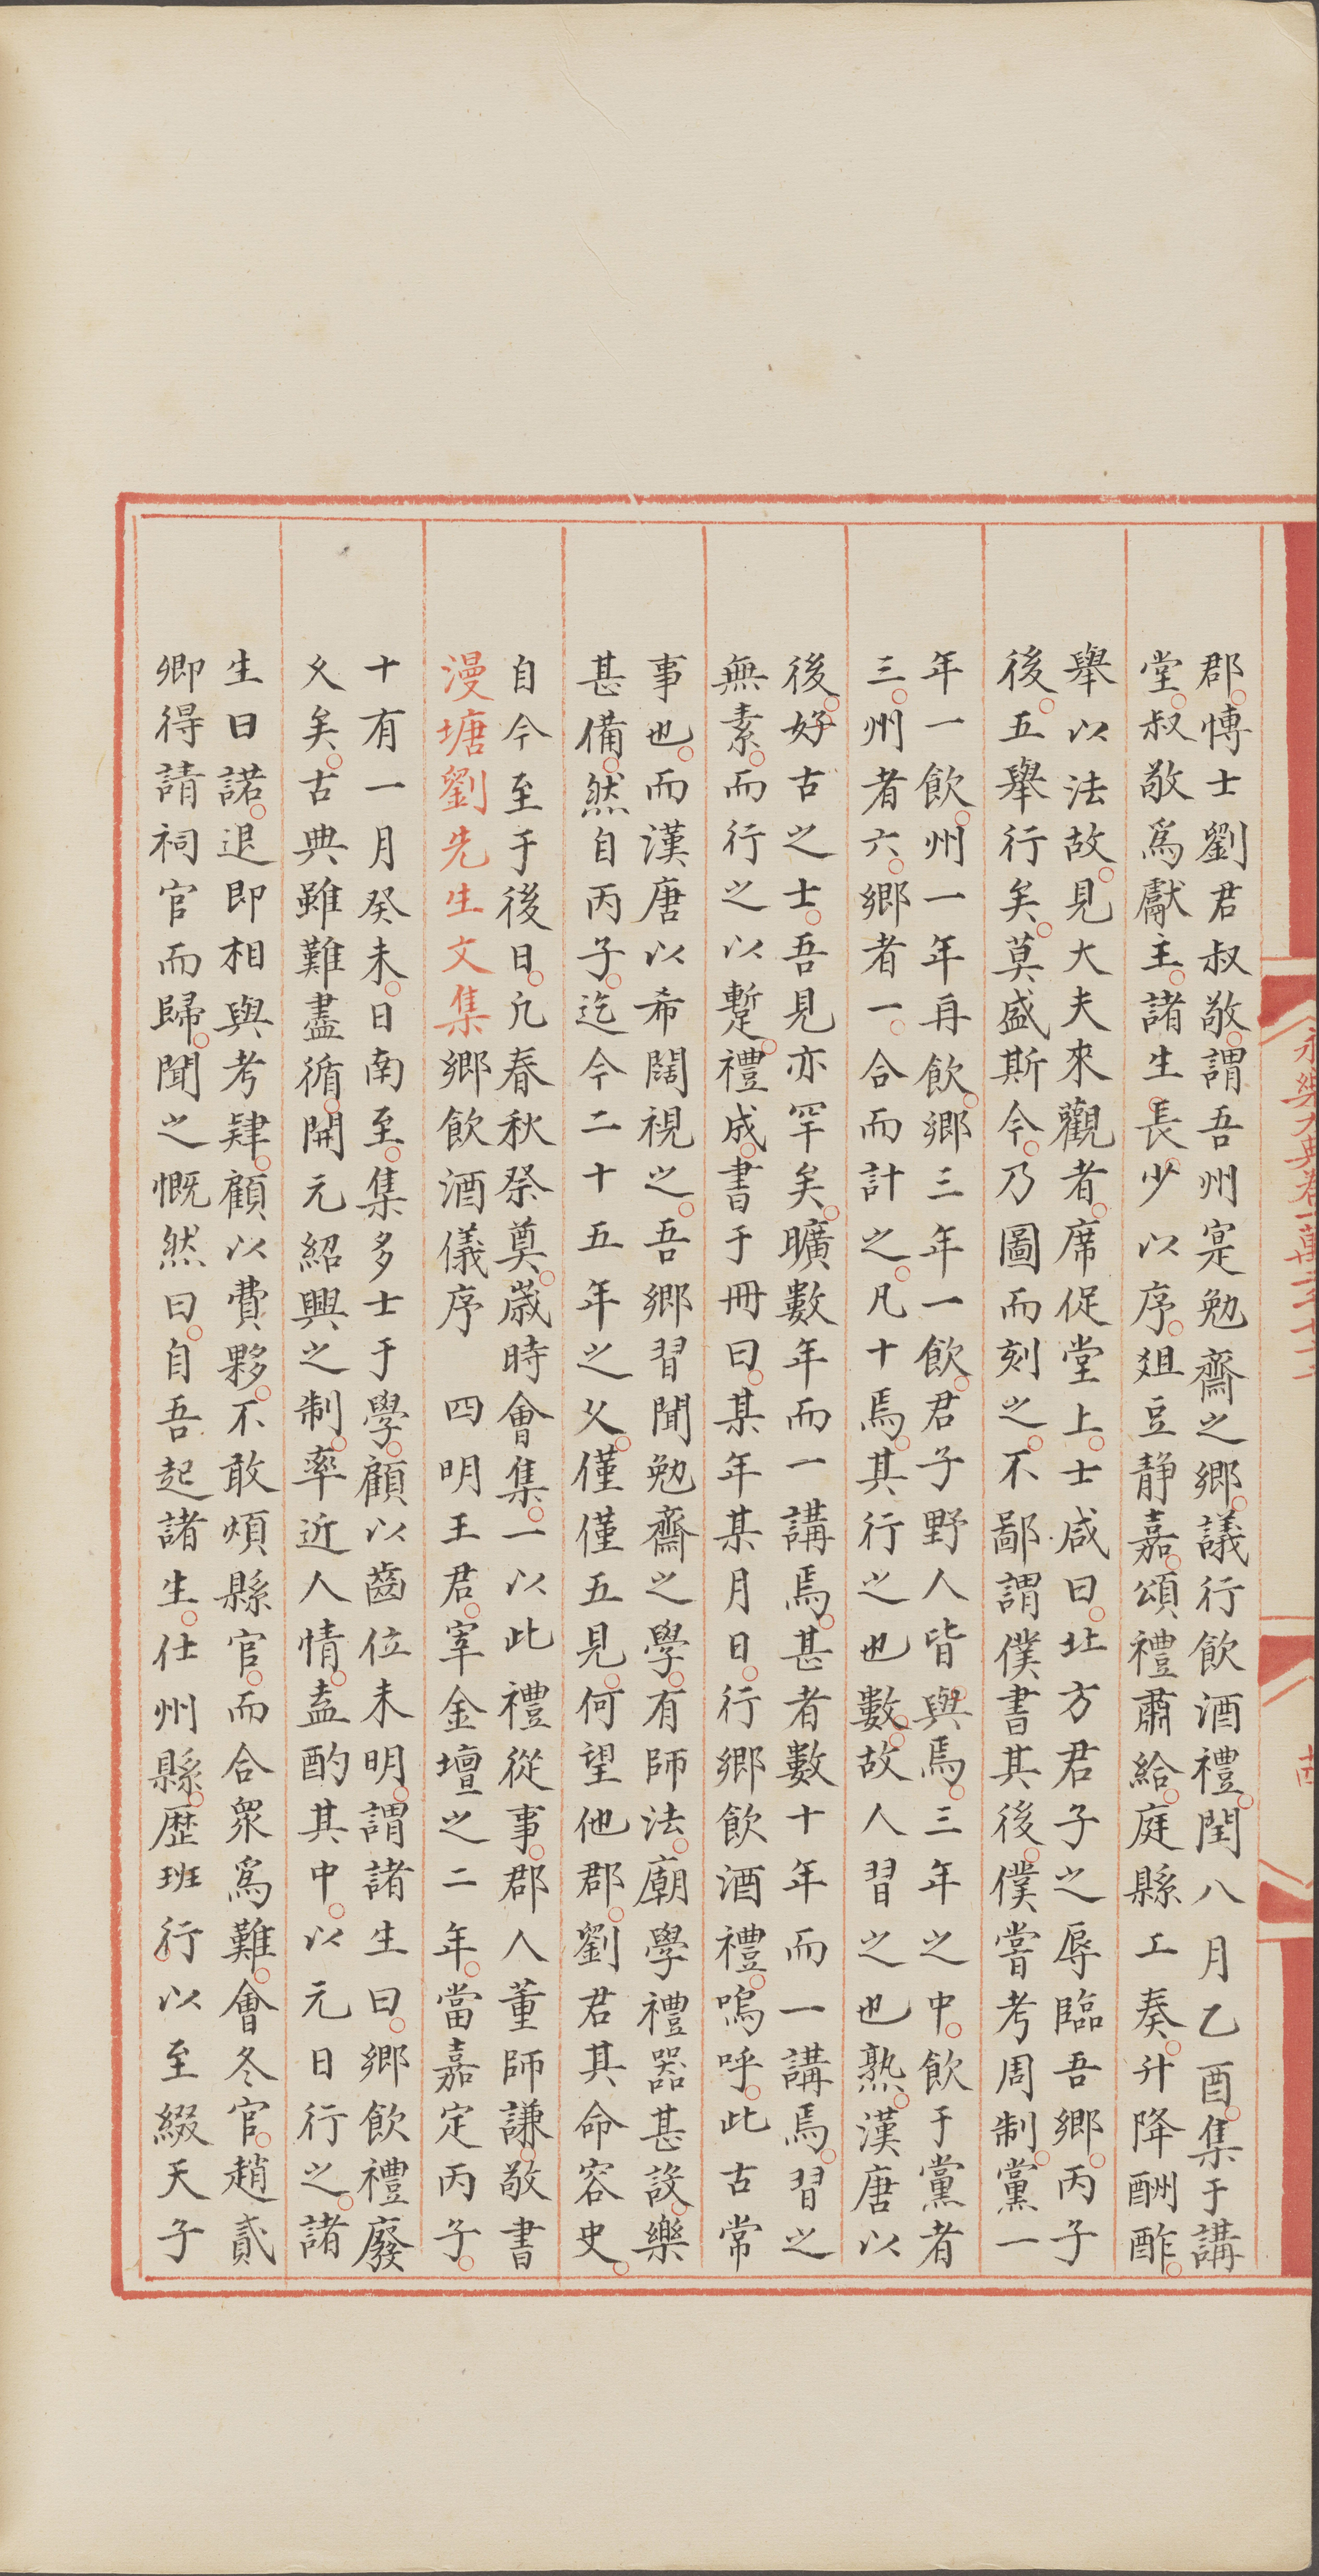 永樂大典卷一萬二千七十二
郡。愽士劉君叔敬。謂吾州寔勉齋之鄉。議行飲酒禮。閏八月乙酉。集于講
堂。叔敬爲獻主。諸生長少以序。爼豆静嘉。頌禮肅給。庭縣工奏。升降酬酢。
舉以法故。見大夫來觀者。席促堂上。士咸曰。北方君子之辱臨吾鄉。丙子
後。五舉行矣。莫盛斯今。乃圖而刻之。不鄙謂僕書其後。僕嘗考周制。黨一
年一飲。州一年再飲。鄉三年一飲。君子野人皆與焉。三年之中。飲于黨者
三。州者六。鄉者一。合而計之。凡十焉。其行之也數。故人習之也熟。漢唐以
後。好古之士。吾見亦罕矣。曠數年而一講焉。甚者數十年而一講焉。習之
無素。而行之以蹔。禮成。書于冊曰。某年某月日。行鄉飲酒禮。嗚呼。此古常
事也。而漢唐以希闊視之。吾鄉習聞勉齋之學。有師法。廟學禮器甚設。樂
甚備。然自丙子。迄今二十五年之乆。僅僅五見。何望他郡。劉君其命容史。
自今至于後日。凢春秋祭奠。歲時會集。一以此禮從事。郡人董師謙。敬書
漫塘劉先生文集鄉飲酒儀序 四明王君。宰金壇之二年。當嘉定丙子。
十有一月癸未。日南至。集多士于學。顧以齒位未明。謂諸生曰。鄉飲禮廢
乆矣。古典雖難盡循。開元紹興之制。率近人情。盍酌其中。以元日行之。諸
生曰諾。退即相與考肄。顧以費夥。不敢煩縣官。而合衆爲難。會冬官。趙貳
卿得請祠官而歸。聞之慨然曰。自吾起諸生。仕州縣。歴班行。以至綴天子